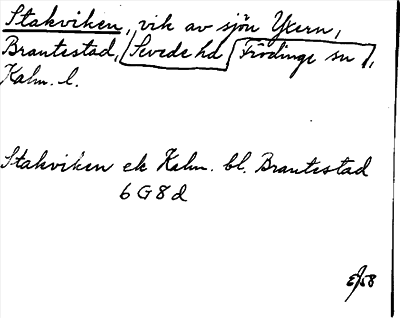 Stakviken, vik av sjön Ykern,
Brantestad, Sevede hd Frödinge sn,
Kalm. l.
Stakviken ek Kalm. bl. Brantestad
6 G 8 d
E/58